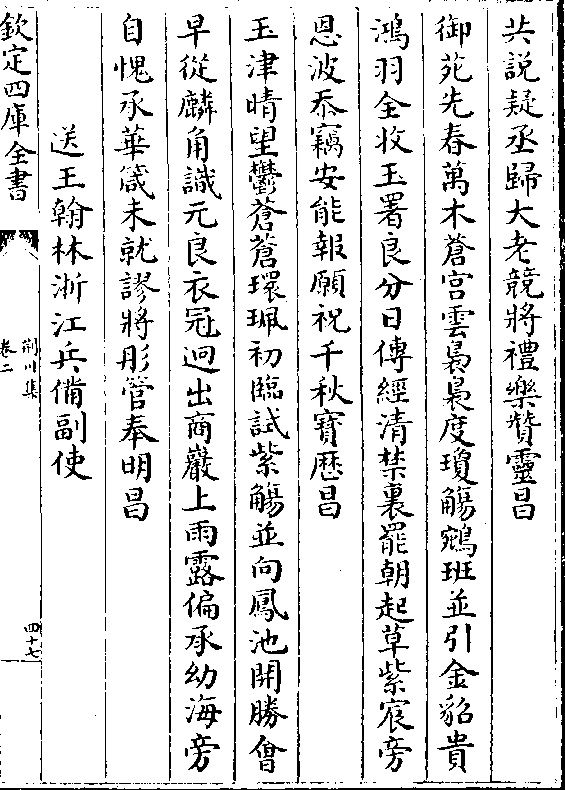 共説疑丞歸大老競將禮樂贊靈昌
御苑先春萬木蒼宫雲裊裊度瓊觴鵷班並引金貂貴
鴻羽全收玉署良分日傳經清禁裏罷朝起草紫宸旁
恩波忝竊安能報願祝千秋寳厯昌
玉津晴望鬱蒼蒼環珮初臨試紫觴並向鳳池開勝㑹
早從麟角識元良衣冠迥出商巖上雨露偏承幼海旁
自愧承華箴未就謬將彤管奉明昌
送王翰林浙江兵備副使
欽定四庫全書
荆川集
卷二
四十七